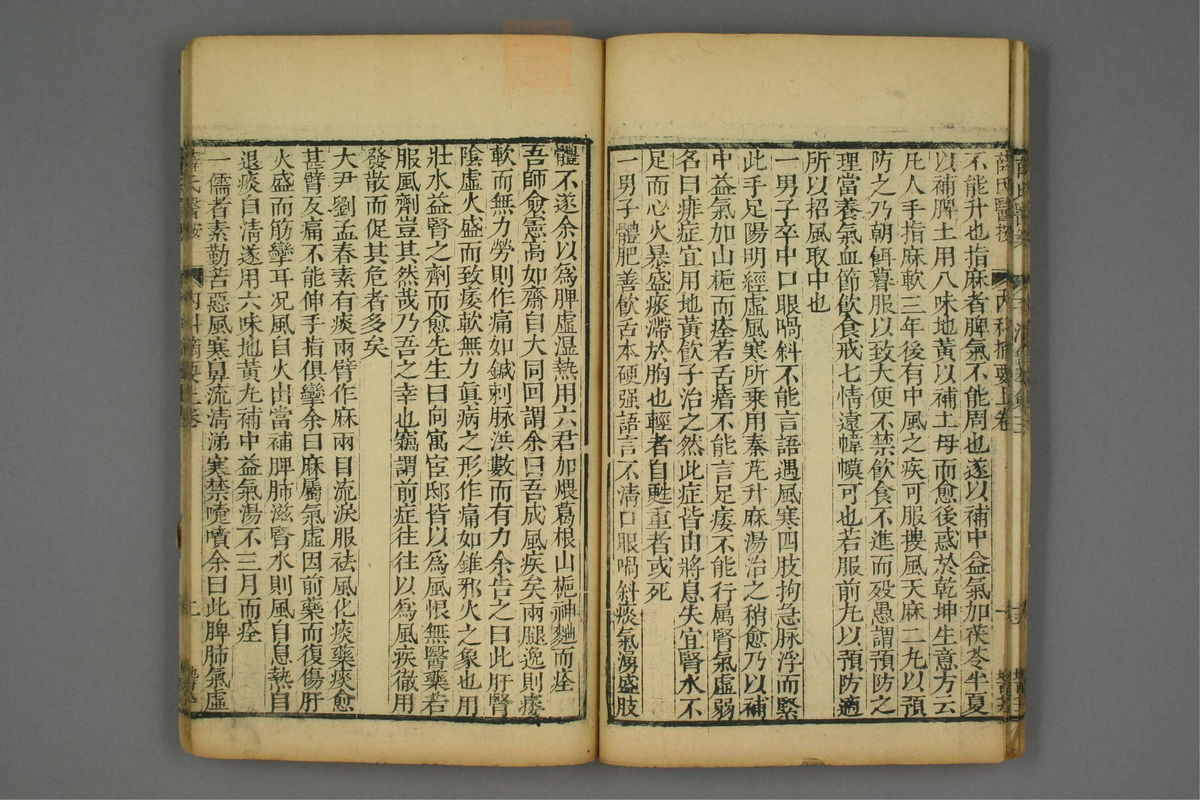 不能升也指麻者脾氣不能周也遂以補中益氣加茯苓半夏
以補脾土用八味地黃以補土母而愈後惑於乾坤生意方云
凡人手指麻軟三年後有中風之疾可服搜風天麻二丸以預
防之乃朝餌暮服以致大便不禁飲食不進而殁愚謂預防之
理當養氣血節飲食戒七情遠幃幙可也若服前丸以預防適
所以招風取中也
一男子卒中口眼喎斜不能言語遇風寒四肢拘急脉浮而緊
此手足陽明經虛風寒所乘用秦艽升麻湯治之稍愈乃以補
中益氣加山梔而痊若舌瘖不能言足痿不能行属腎氣虛弱
名曰痱症宜用地黃飲子治之然此症皆由將息失宜腎水不
足而心火暴盛痰滯於胸也輕者自甦重者或死
一男子體肥善飲舌本硬强語言不清口眼喎斜痰氣湧盛肢
薛氏醫按 內科摘要上卷
體不遂余以爲脾虛湿熱用六君加煨葛根山梔神麯而痊
吾師俞憲高如齋自大同回謂余曰吾成風疾矣兩腿逸則痿
軟而無力勞則作痛如鍼刺脉洪數而有力余告之曰此肝腎
陰虛火盛而致痿軟無力眞病之形作痛如錐邪火之象也用
壯水益腎之劑而愈先生曰向寓宦邸皆以爲風恨無醫藥若
服風劑豈其然哉乃吾之幸也竊謂前症往往以爲風疾徹用
發散而促其危者多矣
大尹劉孟春素有痰兩臂作麻兩目流淚服祛風化痰藥痰愈
甚臂反痛不能伸手指俱攣余曰麻屬氣虛因前藥而復傷肝
火盛而筋攣耳况風自火出當補脾肺滋腎水則風自息熱自
退痰自清遂用六味地黃丸補中益氣湯不三月而痊
一儒者素勤苦惡風寒鼻流清涕寒禁嚏噴余曰此脾肺氣虛
薛氏醫按 內科摘要上卷 二